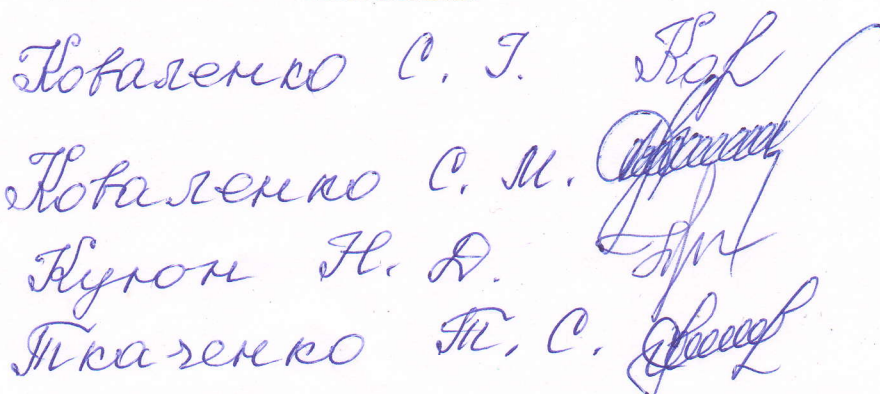 Коваленко С. І.
Коваленко С. М.
Куюн Н. Д.
Ткаченко Т. С.